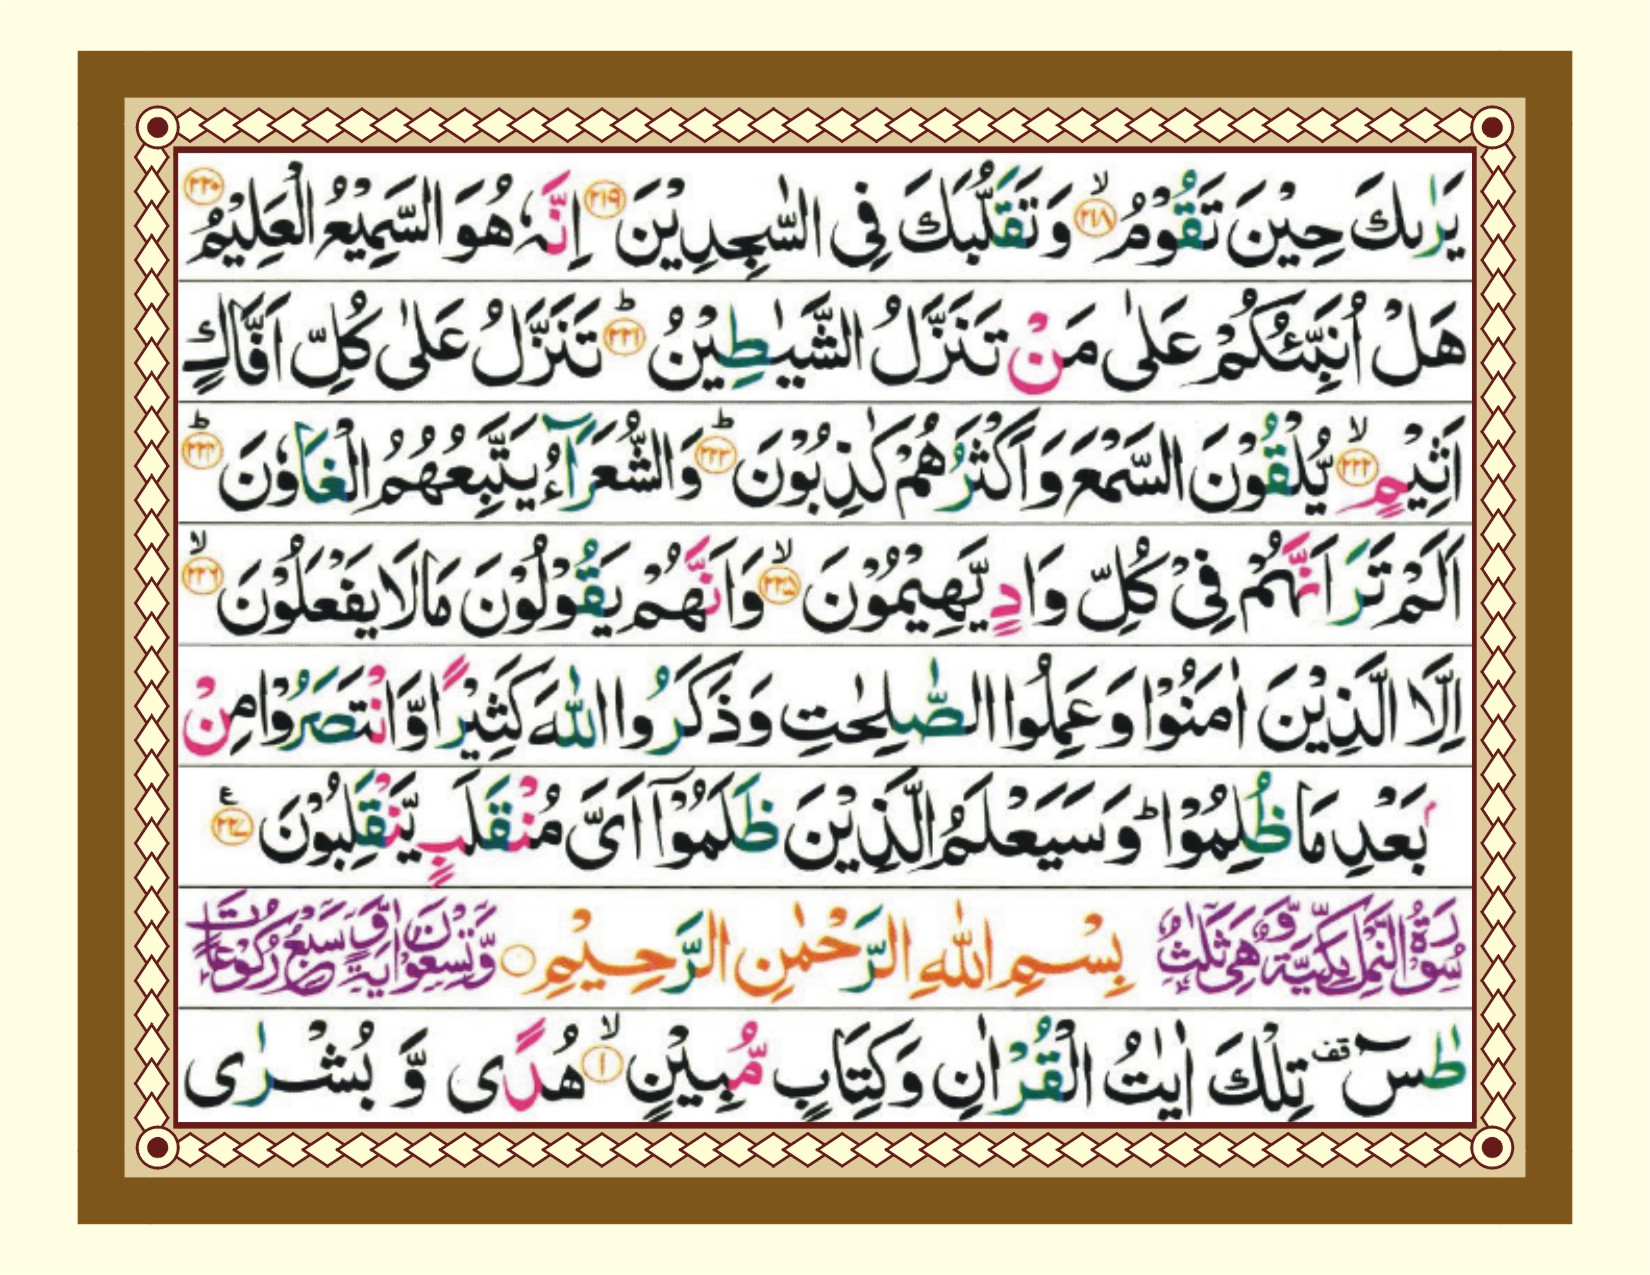 يَرٰىكَ حِيْنَ تَقُوْمُ ۙ﴿۲۱۸﴾ وَتَقَلُّبَكَ فِى السّٰجِدِيْنَ ﴿۲۱۹﴾ اِنَّهٗ هُوَ السَّمِيْعُ الْعَلِيْمُ ﴿۲۲۰﴾
هَلْ اُنَبِّئُكُمْ عَلٰى مَنْ تَنَزَّلُ الشَّيٰطِيْنُ ؕ﴿۲۲۱﴾ تَنَزَّلُ عَلٰى كُلِّ اَفَّاكٍ
اَثِيْمٍ ۙ﴿۲۲۲﴾ يُّلْقُوْنَ السَّمْعَ وَاَكْثَرُهُمْ كٰذِبُوْنَ ؕ﴿۲۲۳﴾ وَالشُّعَرَآءُ يَتَّبِعُهُمُ الْغَاوٗنَ ؕ﴿۲۲۴﴾
اَلَمْ تَرَ اَنَّهُمْ فِىْ كُلِّ وَادٍ يَّهِيْمُوْنَ ۙ﴿۲۲۵﴾ وَاَنَّهُمْ يَقُوْلُوْنَ مَا لَا يَفْعَلُوْنَ ۙ﴿۲۲۶﴾
اِلَّا الَّذِيْنَ اٰمَنُوْا وَعَمِلُوا الصّٰلِحٰتِ وَذَكَرُوا اللّٰهَ كَثِيْرًا وَّانْتَصَرُوْا مِنْۢ
بَعْدِ مَا ظُلِمُوْا ؕ وَسَيَعْلَمُ الَّذِيْنَ ظَلَمُوْۤا اَىَّ مُنْقَلَبٍ يَّنْقَلِبُوْنَ ﴿۲۲۷﴾ ع
سُوْرَةُ النَّمْلِ مَكِّيَّةٌ وَّهِىَ ثَلٰثٌ بِسْمِ اللّٰهِ الرَّحْمٰنِ الرَّحِيْمِ وَّتِسْعُوْنَ اٰيَةً وَّسَبْعُ رُكُوْعَاتٍ
طٰسٓ ࣞقف تِلْكَ اٰيٰتُ الْقُرْاٰنِ وَكِتَابٍ مُّبِيْنٍ ۙ﴿۱﴾ هُدًى وَّ بُشْرٰى